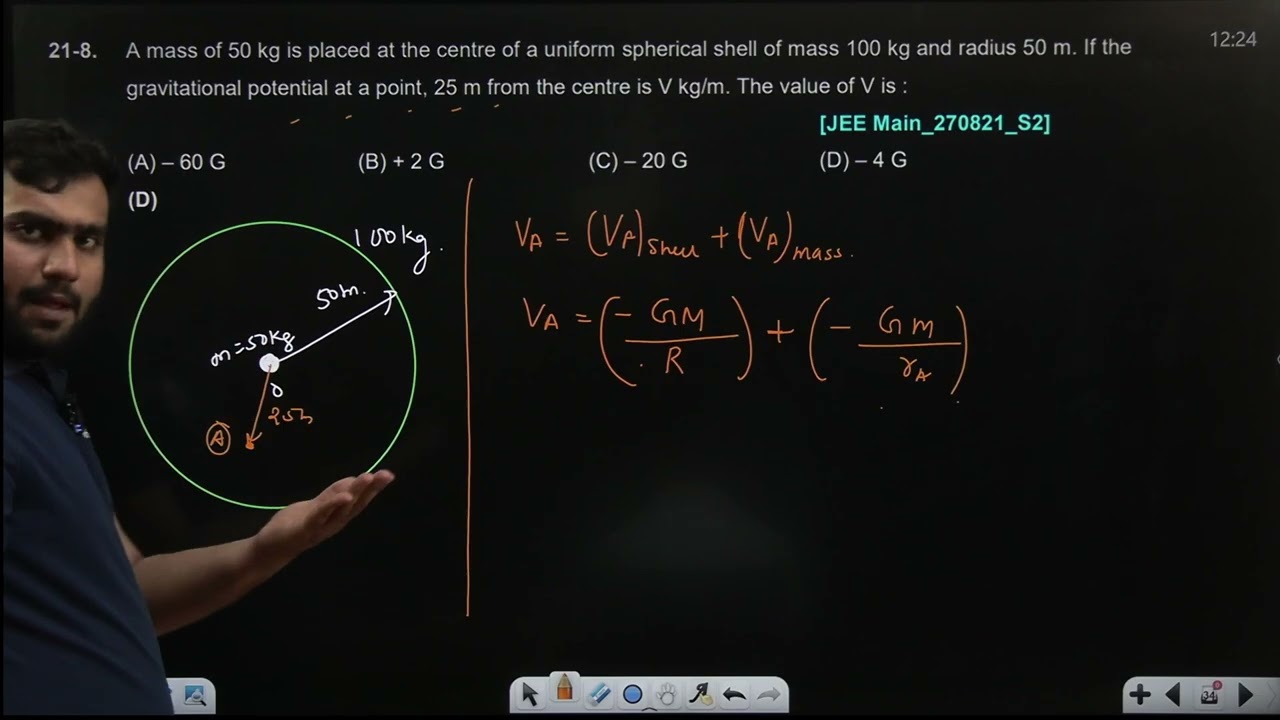 12:24
21-8. A mass of 50 kg is placed at the centre of a uniform spherical shell of mass 100 kg and radius 50 m. If the
gravitational potential at a point, 25 m from the centre is V kg/m. The value of V is :
[JEE Main_270821_S2]
(A) – 60 G (B) + 2 G (C) – 20 G (D) – 4 G
(D)
100kg.
50m.
m=50kg
0
25m
A
V_A = (V_A)shell + (V_A)mass.
V_A = (- GM / R) + (- Gm / r_A)
34